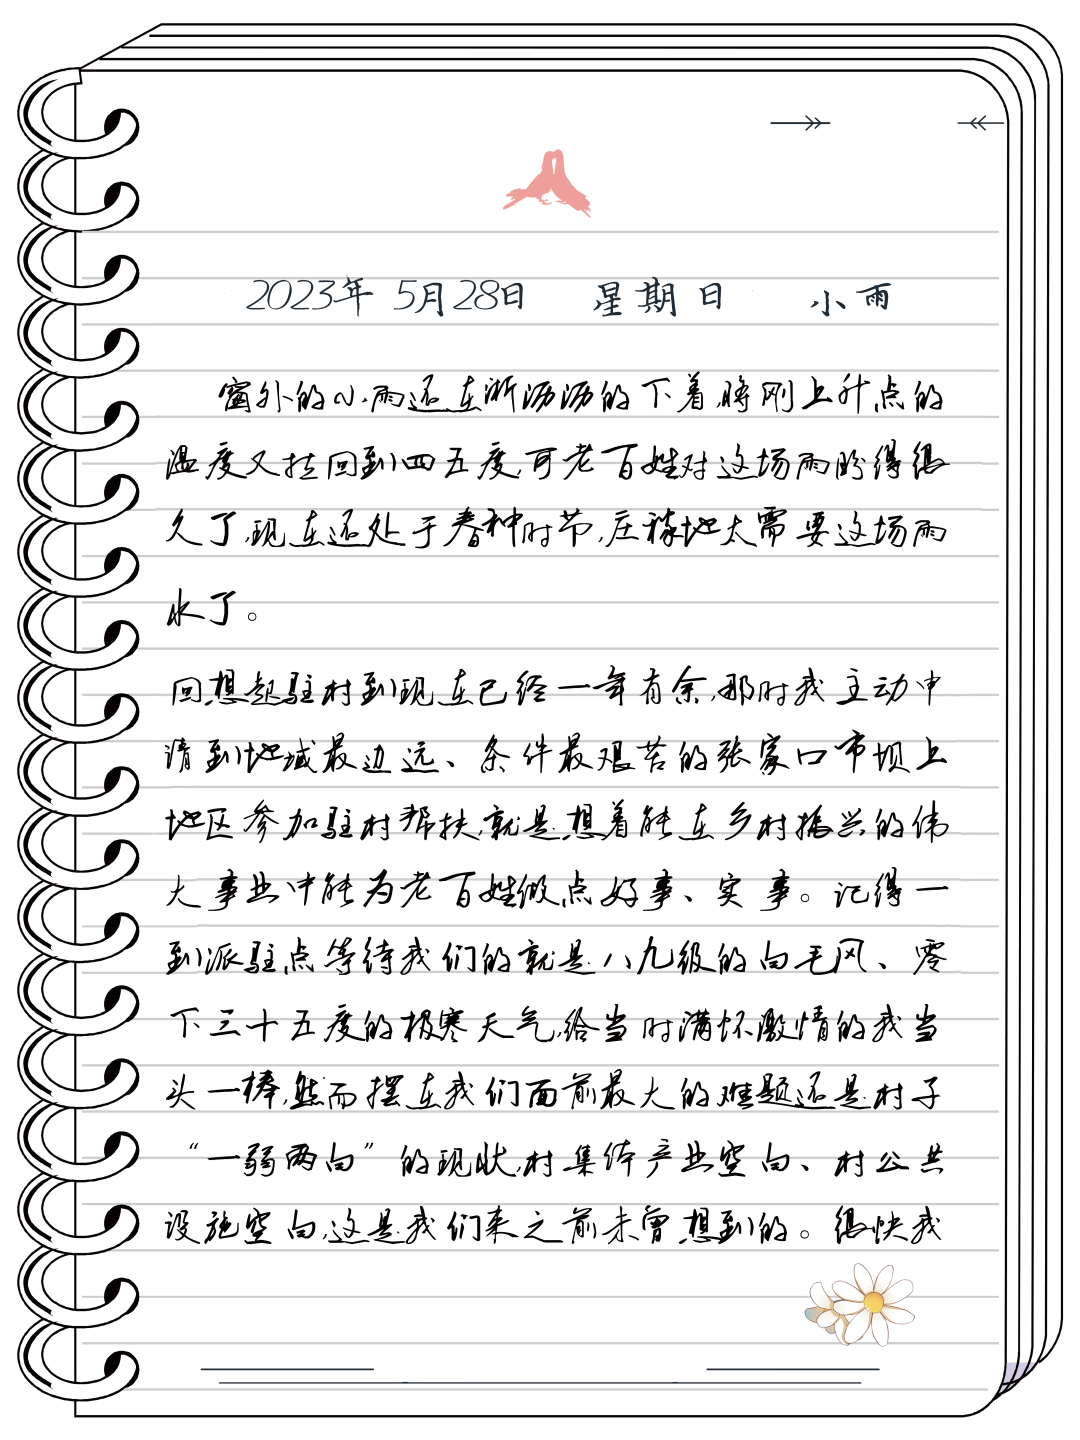 2023年 5月28日 星期日 小雨
窗外的小雨还在淅沥沥的下着,将刚上升点的
温度又拉回到四五度,可老百姓对这场雨盼得很
久了,现在还处于春种时节,庄稼地太需要这场雨
水了。
回想起驻村到现在已经一年有余,那时我主动申
请到地域最边远、条件最艰苦的张家口市坝上
地区参加驻村帮扶,就是想着能在乡村振兴的伟
大事业中能为老百姓做点好事、实事。记得一
到派驻点等待我们的就是八九级的白毛风、零
下三十五度的极寒天气,给当时满怀激情的我当
头一棒,然而摆在我们面前最大的难题还是村子
“一弱两白”的现状,村集体产业空白、村公共
设施空白,这是我们来之前未曾想到的。很快我